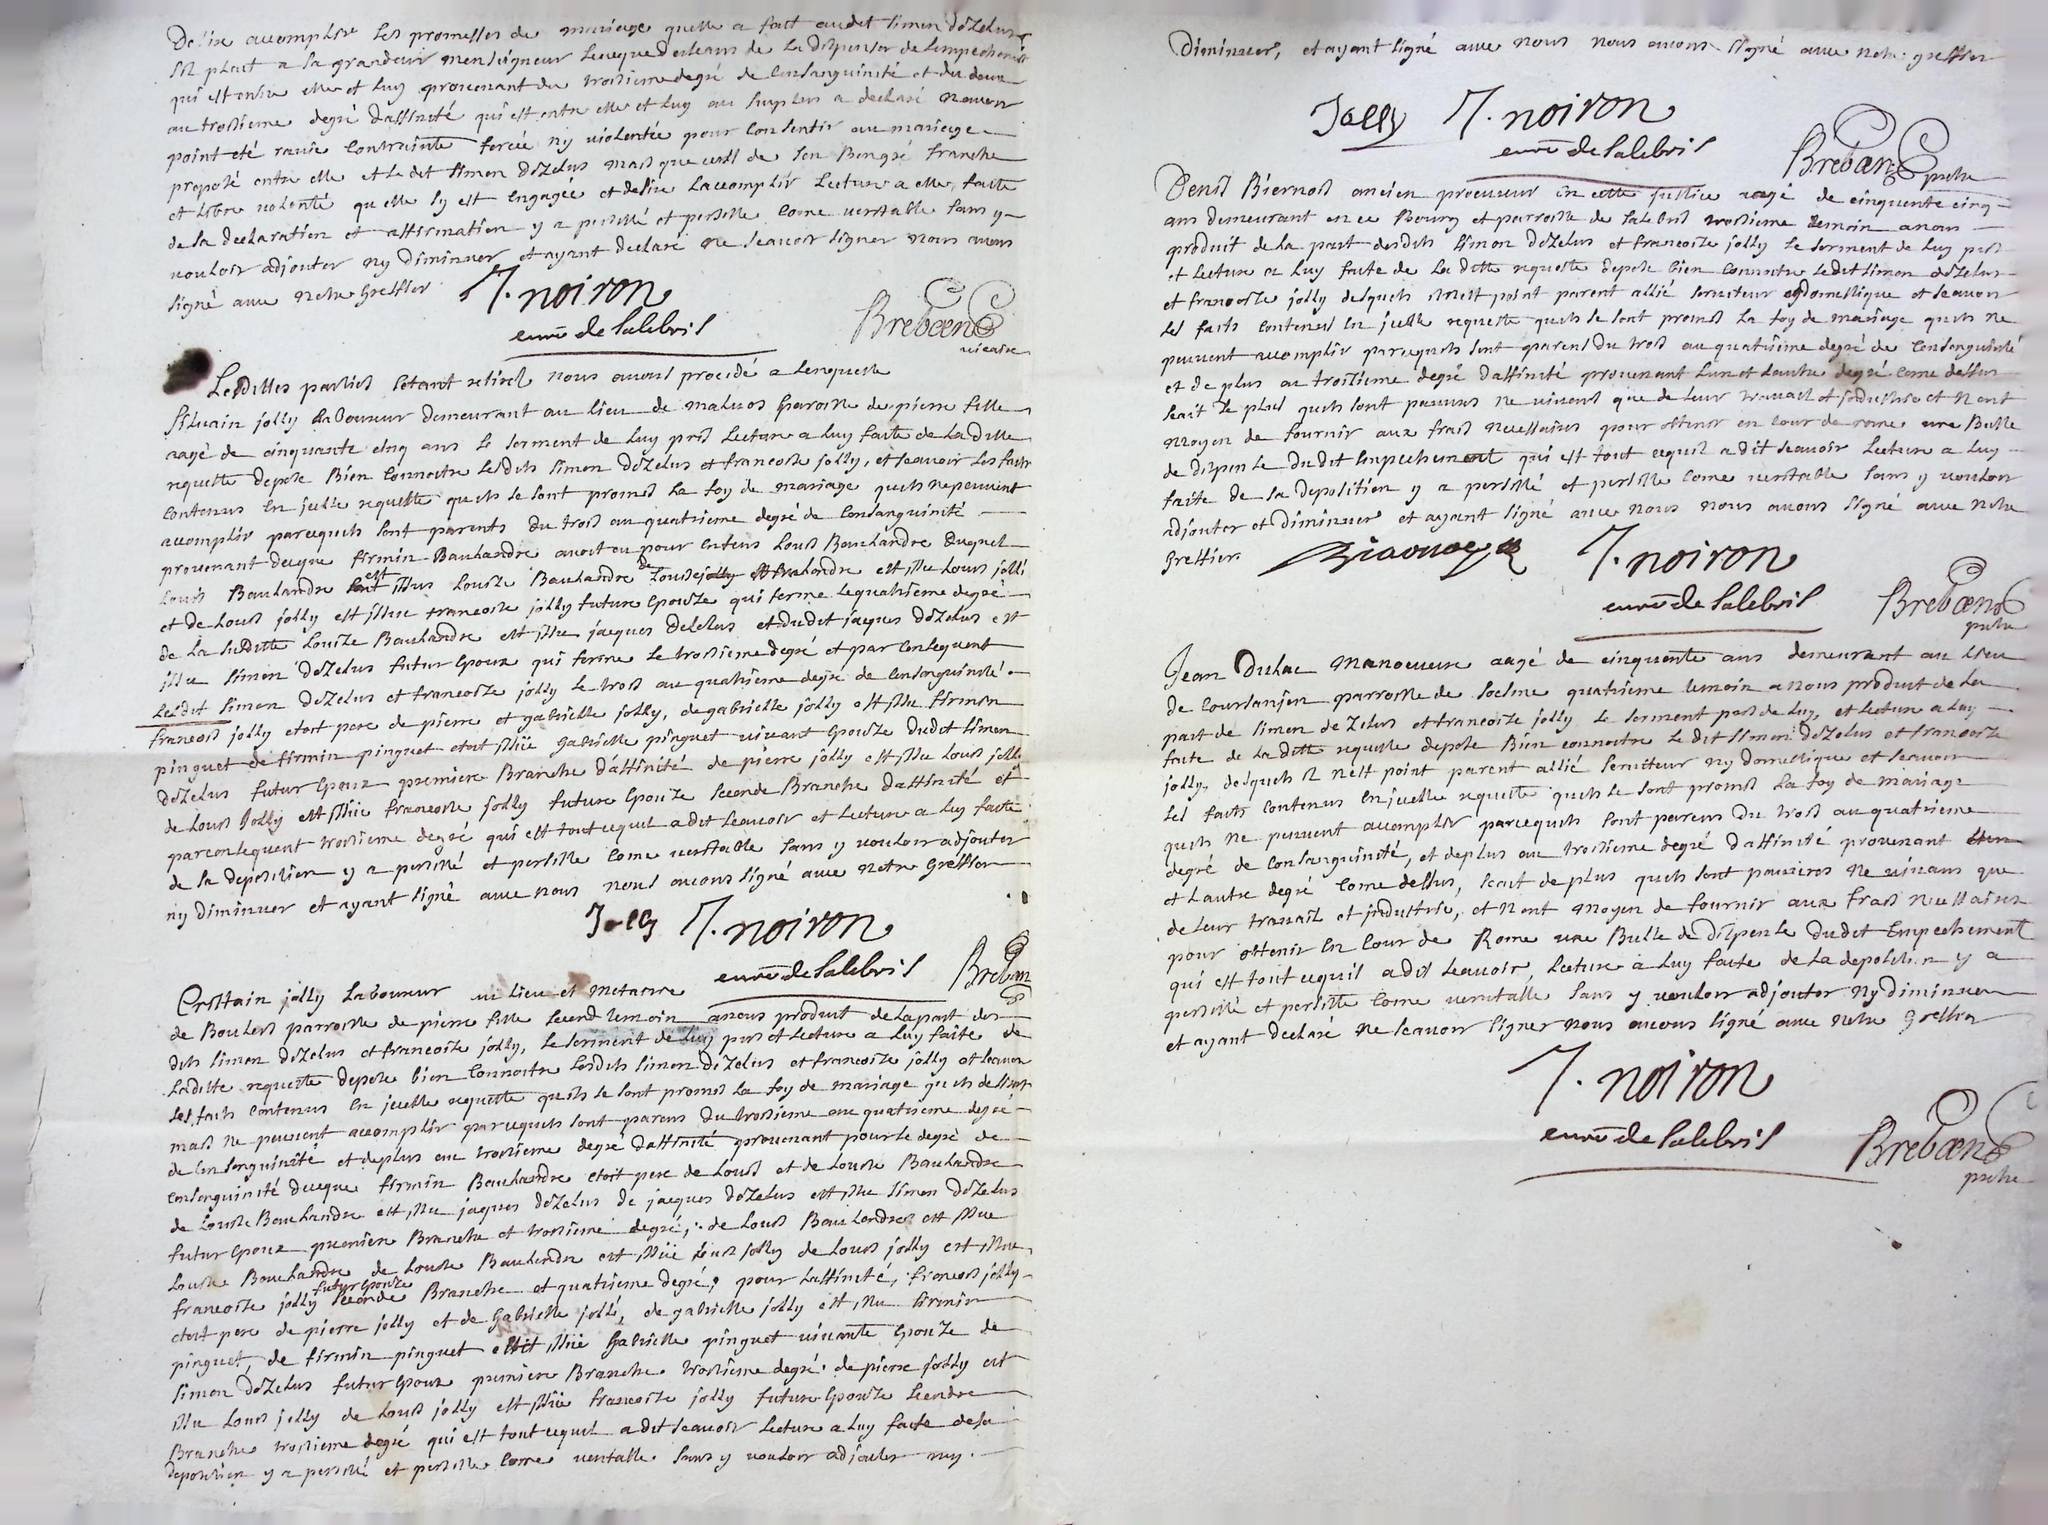 desire accomplire les promesses de mariage quelle a fait audit simon dézelus
sil plait a sa grandeur monseigneur leveque dorleans de la dispenser de lempechement
qui est entre elle et luy provenant du troisieme degré de consanguinité et du deux
au troisieme degré daffinité qui est entre elle et luy au surplus a declaré navoir
point eté ravie contrainte forcée ny violentée pour consentir au mariage
proposé entre elle et le dit simon dézelus mais que cest de son bongré franche
et libre volonté quelle sy est engagée et desire laccomplir lecture a elle faite
de sa declaration et affirmation y a persisté et persiste come veritable sans y
vouloir adjouter ny diminuer et ayant declaré ne scavoir signer nous avons
signé avec notre Greffier
J. noiron
curé de Salebris
Breboen
vicaire
Lesdittes parties setant retirés nous avons procedé a lenqueste
silvain jolly laboureur demeurant au lieu de parroisse de pierre fitte
aagé de cinquante cinq ans le serment de luy pris lecture a luy faite de la ditte
requette depose bien connoitre lesdits simon dézelus et francoise jolly, et scavoir les faits
contenus en jcelle requette quils se sont promis la foy de mariage quils ne peuvent
acomplir parcequils sont parents du trois au quatrieme degré de consanguinité
provenant de ce que firmin Baulandre avoit eu pour enfens Louis Baulandre duquel
Louis Baulandre est issus Louise Baulandre de Louise est issu Louis jolli
et de Louis jolly est issue francoise jolly future epouze qui forme le quatrieme degré
de la suditte Louise Baulandre est issu jacques Dézelus et dudit jacques dézelus est
issu simon dézelus futur epoux qui forme le troisieme degré et par consequent
lesdit simon dézelus et francoise jolly le trois au quatrieme degré de consanguinité.
francois jolly etoit pere de pierre et gabrielle jolly, de gabrielle jolly est issu firmin
pinguet de firmin pinguet etoit issüe Gabrielle pinguet vivant epouze dudit simon
dézelus futur epoux premiere Branche daffinité de pierre jolly est issu Louis jolly
de Louis jolly est issüe francoise jolly future epouze seconde Branche daffinité et
par consequent troisieme degré qui est tout cequil a dit scavoir et lecture a luy faite
de sa deposition y a persisté et persiste come veritable sans y vouloir adjouter
ny diminuer et ayant signé avec nous nous avons signé avec notre Gréffier
Jolly J. noiron
curé de Salebris
Breboen
jolly laboureur au lieu et metairie
de Boulers parroisse de pierre fitte second temoin a nous produit de la part des
dits simon dézelus et francoise jolly, le serment de luy pris et lecture a luy faite de
laditte requette depose bien connoitre lesdits simon dézelus et francoise jolly et scavoir
les faits contenus en jcelle requette quils se sont promis la foy de mariage quils desirent
mais ne peuvent acomplir parcequils sont parens du troisieme au quatrieme degré
de consanguinité et deplus au troisieme degré daffinité provenant pour le degré de
consanguinité de ce que firmin Baulandre etoit pere de Louis et de Louise Baulandre
de Louise Baulandre est issu jacques dézelus de jacques dézelus est issu simon dézelus
futur epoux premiere Branche et troisieme degré; de Louis Baulandre est issue
Louise Baulandre de Louise Baulandre est issüe Louis jolly de Louis jolly est issue
francoise jolly future epouze seconde Branche et quatrieme degré; pour laffinité, francois jolly
etoit pere de pierre jolly et de Gabrielle jolli, de gabrielle jolly est issu firmin
pinguet, de firmin pinguet etoit issüe Gabrielle pinguet vivante epouze de
simon dézelus futur epoux premiere Branche troisieme degré. de pierre jolly est
issu Louis jolly de Louis jolly est issüe francoise jolly future epouze seconde
Branche troisieme degré qui est tout cequil a dit scavoir lecture a luy faite de sa
deposition y a persisté et persiste come veritable sans y vouloir adjouter ny
diminuer, et ayant signé avec nous nous avons signé avec notre greffier
Jolly J. noiron
curé de Salebris
Breboen
pretre
Denis Biernois ancien procureur en cette justice aagé de cinquente cinq
ans demeurant en ce Bourg et parroisse de salebris troisieme temoin a nous
produit de la part desdits simon dézelus et francoise jolly le serment de luy pris
et lecture a luy faite de la ditte requette depose bien connoitre ledit simon dézelus
et francoise jolly desquels il nest point parent allié serviteur ny domestique et scavoir
les faits contenus en jcelle requette quils se sont promis la foy de mariage quils ne
peuvent acomplir parcequils sont parens du trois au quatrieme degré de consanguinité
et de plus au troisieme degré daffinité provenant lun et lautre degré come dessus
scait de plus quils sont pauvres ne vivans que de leur travail et jndustrie et nont
moyen de fournir aux frais necessaires pour obtenir en cour de rome une Bulle
de dispense dudit Empechement qui est tout cequil a dit scavoir lecture a luy
faite de sa deposition y a persisté et persiste come veritable sans y vouloir
adjouter et diminuer et ayant signé avec nous nous avons signé avec notre
Greffier.
J. noiron
curé de Salebris
Breboen
pretre
Jean Duhac manoeuvre aagé de cinquente ans demeurant au lieu
de parroisse de quatrieme temoin a nous produit de la
part de simon dezelus et francoise jolly le serment pris de luy, et lecture a luy
faite de la ditte requette depose bien connoitre le dit simon dézelus et francoise
jolly, desquels il nest point parent allié serviteur ny domestique et scavoir
les faits contenus en jcelle requette quils se sont promis la foy de mariage
quils ne peuvent acomplir parcequils sont parens du trois au quatrieme
degré de consanguinité, et deplus au troisieme degré daffinité provenant lun
et lautre degré come dessus, scait de plus quils sont pauvres ne vivans que
de leur travail et jndustrie, et nont moyen de fournir aux frais necessaires
pour obtenir en cour de Rome une Bulle de dispense dudit Empechement
qui est tout cequil a dit scavoir, lecture a luy faite de sa deposition y a
persisté et persiste come veritable sans y vouloir adjouter ny diminuer
et ayant declaré ne scavoir signer nous avons signé avec notre Greffier
J. noiron
curé de Salebris
Breboen
pretre